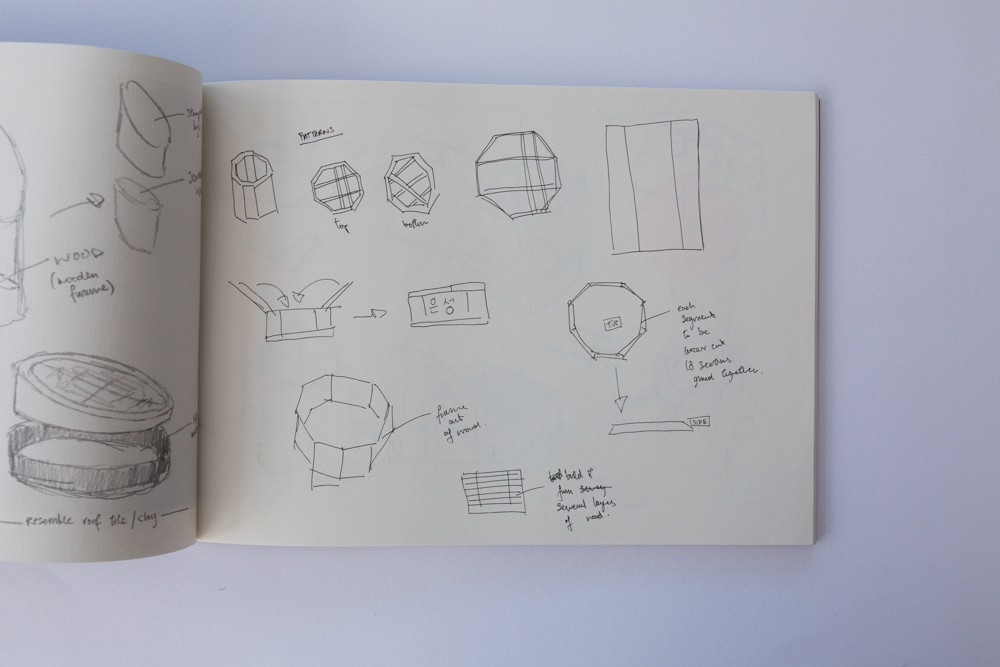 WOOD
(wooden
frame)
resemble roof tile/clay
PATTERNS
top
bottom
은성
TOP
each
segment
to be
laser cut
(8 sections
glued together.
SIDE
frame
out
of wood.
build it
from
several layers
of wood.